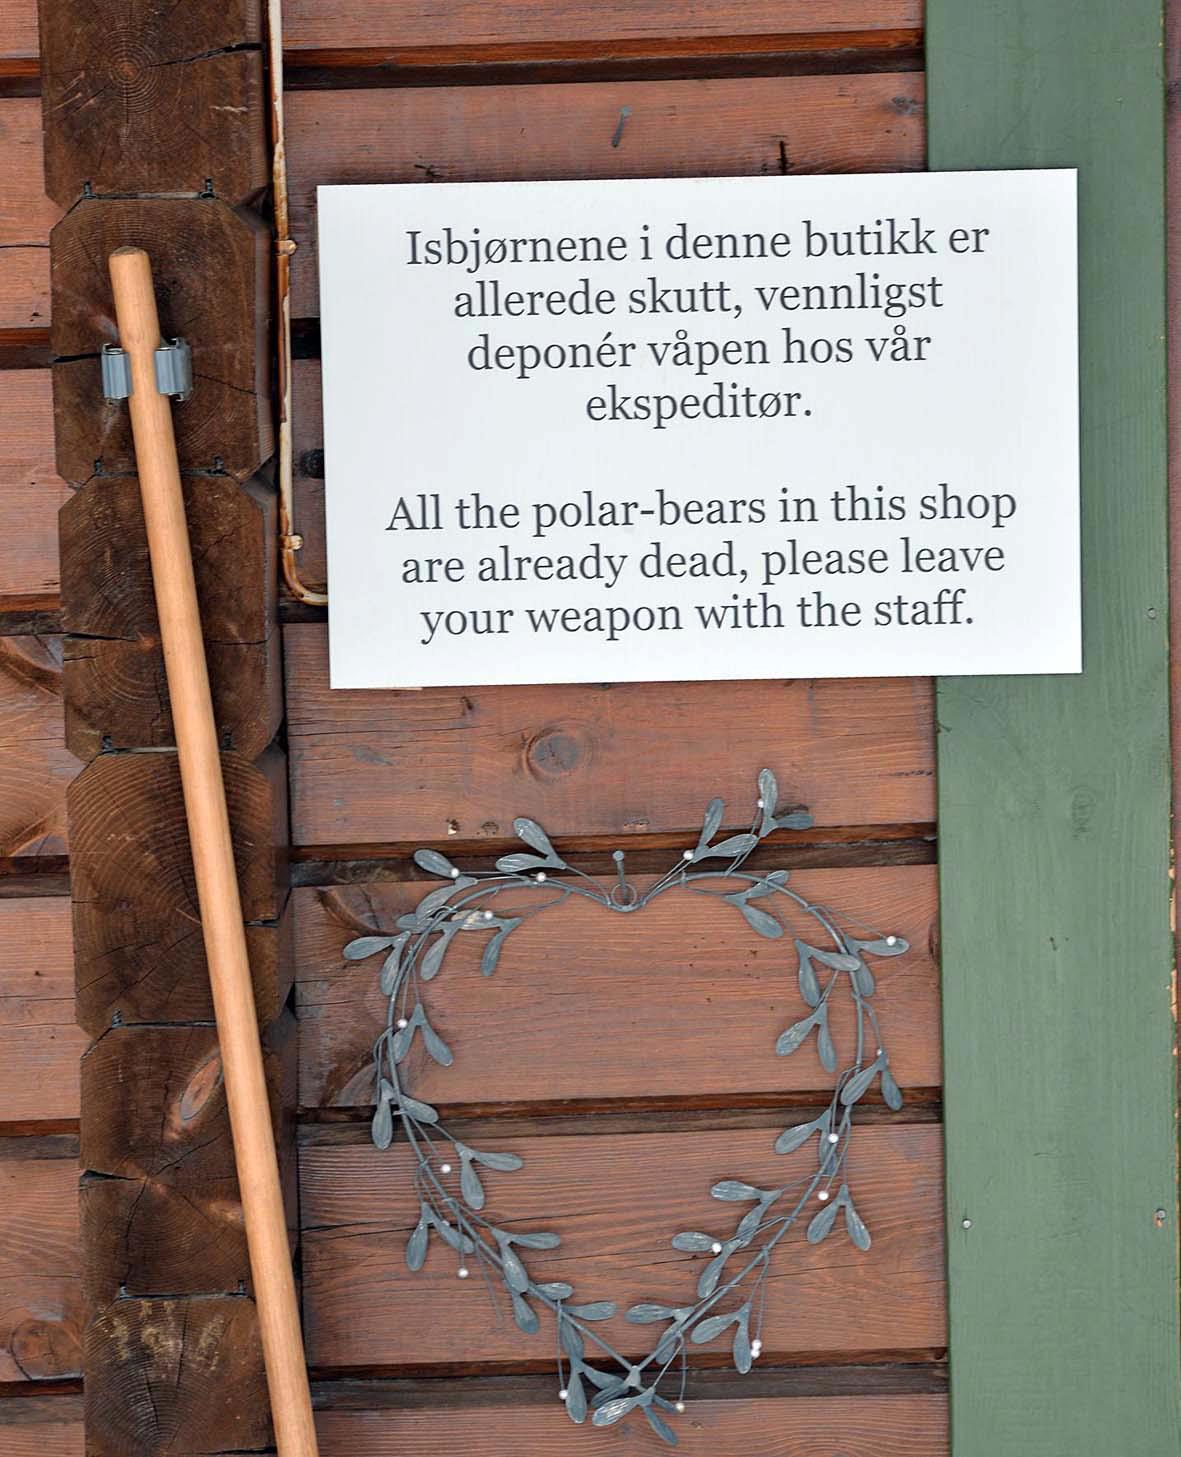 Isbjørnene i denne butikk er
allerede skutt, vennligst
deponér våpen hos vår
ekspeditør.
All the polar-bears in this shop
are already dead, please leave
your weapon with the staff.